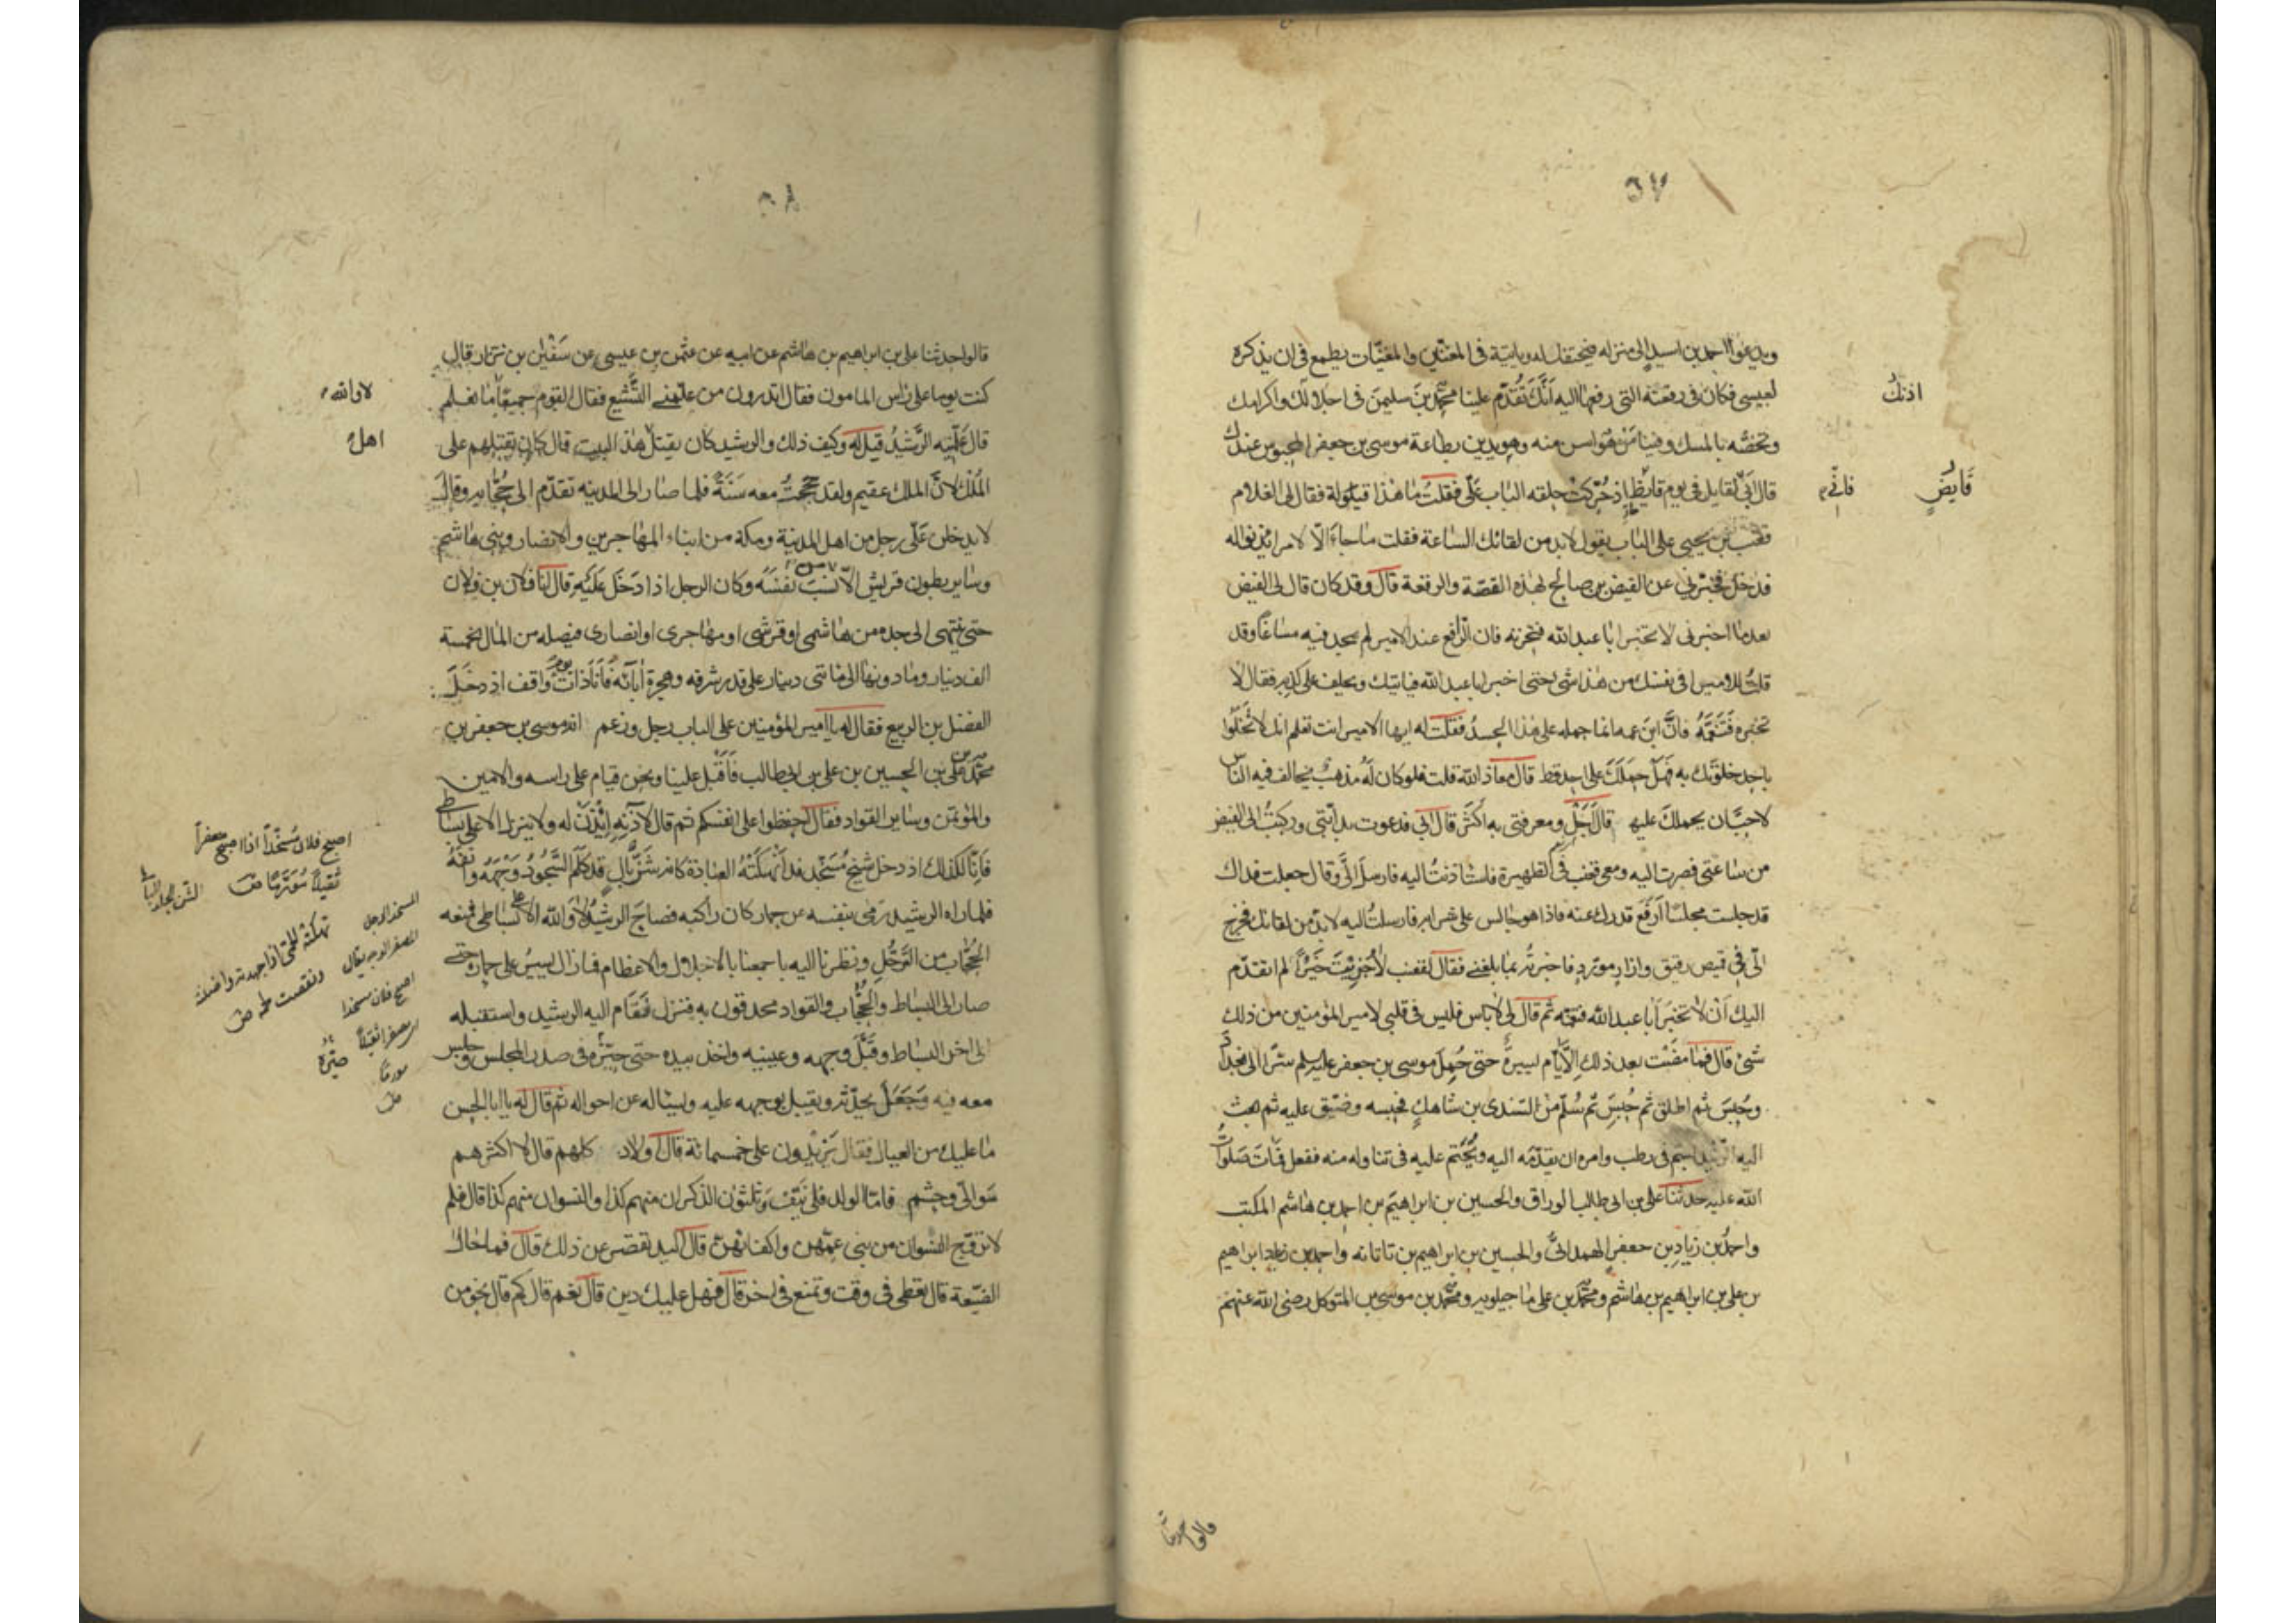 ٥٧
ويدعو احمد بن اسيد الى منزله فيحتفل له ويأتيه في المغنين والمغنيات يطمع في ان يذكره
لعيسى فكان في رقعته التي رفعها اليه انك تقدم علينا محمد بن سليمن في اجلالك واكرامك
اذنك
وتخصه بالمسك وفينا من هو اسن منه وهو يدين بطاعة موسى بن جعفر المحبوس عندك
قال ابي لقايل في يوم قايظ اذ حركت حلقه الباب علي فقلت ما هذا فقال لي الغلام
قايض
فاني
قعنب بن يحيى على الباب يقول لابد من لقائك الساعة فقلت ما جاء الا لامر ائذنوا له
فدخل فخبرني عن الفيض بن صالح بهذه القصة والرقعة قال وقد كان قال لي الفيض
بعد ما اخبرني لا تخبر ابا عبد الله فتحزنه فان الرافع عند الامير لم يجد فيه مساغا وقد
قلت للامير افي نفسك من هذا شي حتى اخبر ابا عبد الله فياتيك ويحلف على كذبه فقال لا
تخبره فتغمه فان ابن عمه انما حمله على هذا الحسد فقلت له ايها الامير انت تعلم انك لا تخلوا
باحد خلوتك به فهل حملك على احد قط قال معاذ الله قلت فلو كان له مذهب يخالف فيه الناس
لاحب ان يحملك عليه قال اجل ومعرفتي به اكثر قال ابي فدعوت بدابتي وركبت الى الفيض
من ساعتي فصرت اليه ومعي قعنب في الظهيرة فاستاذنت اليه فارسل الي وقال جعلت فداك
قد جلست مجلسا ارفع قدرك عنه فاذا هو جالس على شرابه فارسلت اليه لابد من لقائك فخرج
الي في قميص رقيق وازار مورد فاخبرته بما بلغني فقال لقعنب لا جزيت خيرا الم اتقدم
اليك ان لا تخبر ابا عبد الله فتغمه ثم قال لي لا باس فليس في قلبي لامير المؤمنين من ذلك
شئ قال فما مضت بعد ذلك الا ايام يسيرة حتى حمل موسى بن جعفر عليه السلم سرا الى بغداد
وحبس ثم اطلق ثم حبس ثم سلم من السندى بن شاهك فحبسه وضيق عليه ثم بعث
اليه الرشيد بسم في رطب وامره ان يقدمه اليه ويحتم عليه في تناوله منه ففعل فمات صلوات
الله عليه حدثنا علي بن ابي طالب الوراق والحسين بن ابراهيم بن احمد بن هاشم المكتب
واحمد بن زياد بن جعفر الهمداني والحسين بن ابراهيم بن تاتانه واحمد بن زياد ابراهيم
بن علي بن ابراهيم بن هاشم ومحمد بن علي ماجيلويه ومحمد بن موسى بن المتوكل رضي الله عنهم
قالوا حدثنا
٥٨
قالوا حدثنا علي بن ابراهيم بن هاشم عن ابيه عن عثمن بن عيسى عن سفين بن نزار قال
كنت يوما على راس المامون فقال اتدرون من علمني التشيع فقال القوم جميعا ما نعلم
لا والله
قال علمنيه الرشيد قيل له وكيف ذلك والرشيد كان يقتل هذا البيت قال كان يقتلهم على
اهل
الملك لان الملك عقيم ولقد حججت معه سنة فلما صار الى المدينه تقدم الى حجابه وقال
لا يدخلن علي رجل من اهل المدينة ومكة من ابناء المهاجرين والانصار وبني هاشم
وساير بطون قريش الا نسب نفسه وكان الرجل اذا دخل عليه قال انا فلان بن فلان
حتى ينتهى الى جده من هاشمى او قرشى او مهاجرى او انصارى فيصله من المال بخمسة
الف دينار وما دونها الى ماتى دينار على قدر شرفه وهجرة ابائه فانا ذات يوم واقف اذ دخل
الفضل بن الربيع فقال له يا امير المؤمنين على الباب رجل وزعم انه موسى بن جعفر بن
محمد بن علي بن الحسين بن علي بن ابى طالب فاقبل علينا ونحن قيام على راسه والامين
والمؤتمن وساير القواد فقال احفظوا على انفسكم ثم قال لاذنه ائذن له ولا ينزل الا على بساطي
فانا كذلك اذ دخل شيخ مسخد قد انهكته العبادة كانه شن بال قد كلم السجود وجهه وانفه
فلما راه الرشيد رمى بنفسه عن حمار كان راكبه فصاح الرشيد لا والله الا على بساطي فمنعه
الحجاب من الترجل ونظرنا اليه باجمعنا بالاجلال والاعظام فما زال يسير على حماره حتى
صار الى البساط والحجاب والقواد محدقون به فنزل فقام اليه الرشيد واستقبله
الى اخر البساط وقبل وجهه وعينيه واخذ بيده حتى صيره في صدر المجلس وجلس
معه فيه وجعل يحدثه ويقبل بوجهه عليه ويساله عن احواله ثم قال له يا ابا الحسن
ما عليك من العيال فقال يزيدون على خمسمائة قال اولاد كلهم قال لا اكثرهم
موالي وحشم فاما الولد فلي نيف وثلثون الذكران منهم كذا والنسوان منهم كذا قال فلم
لا تزوج النسوان من بني عمهن واكفائهن قال اليد تقصر عن ذلك قال فما حال
الضيعة قال تعطى في وقت وتمنع في اخر قال فهل عليك دين قال نعم قال كم قال نحو من
اصبح فلان مسخدا اذا اصبح مصفرا
ثقيلا مورما ص
الشن الجلد البالي
المسخد الرجل
المصفر الوجه يقال
اصبح فلان مسخدا
اى مصفرا ثقيلا
مورما
ص
نهكته الحمى اذا جهدته واضنته
ونقصت لحمه ص
صيره